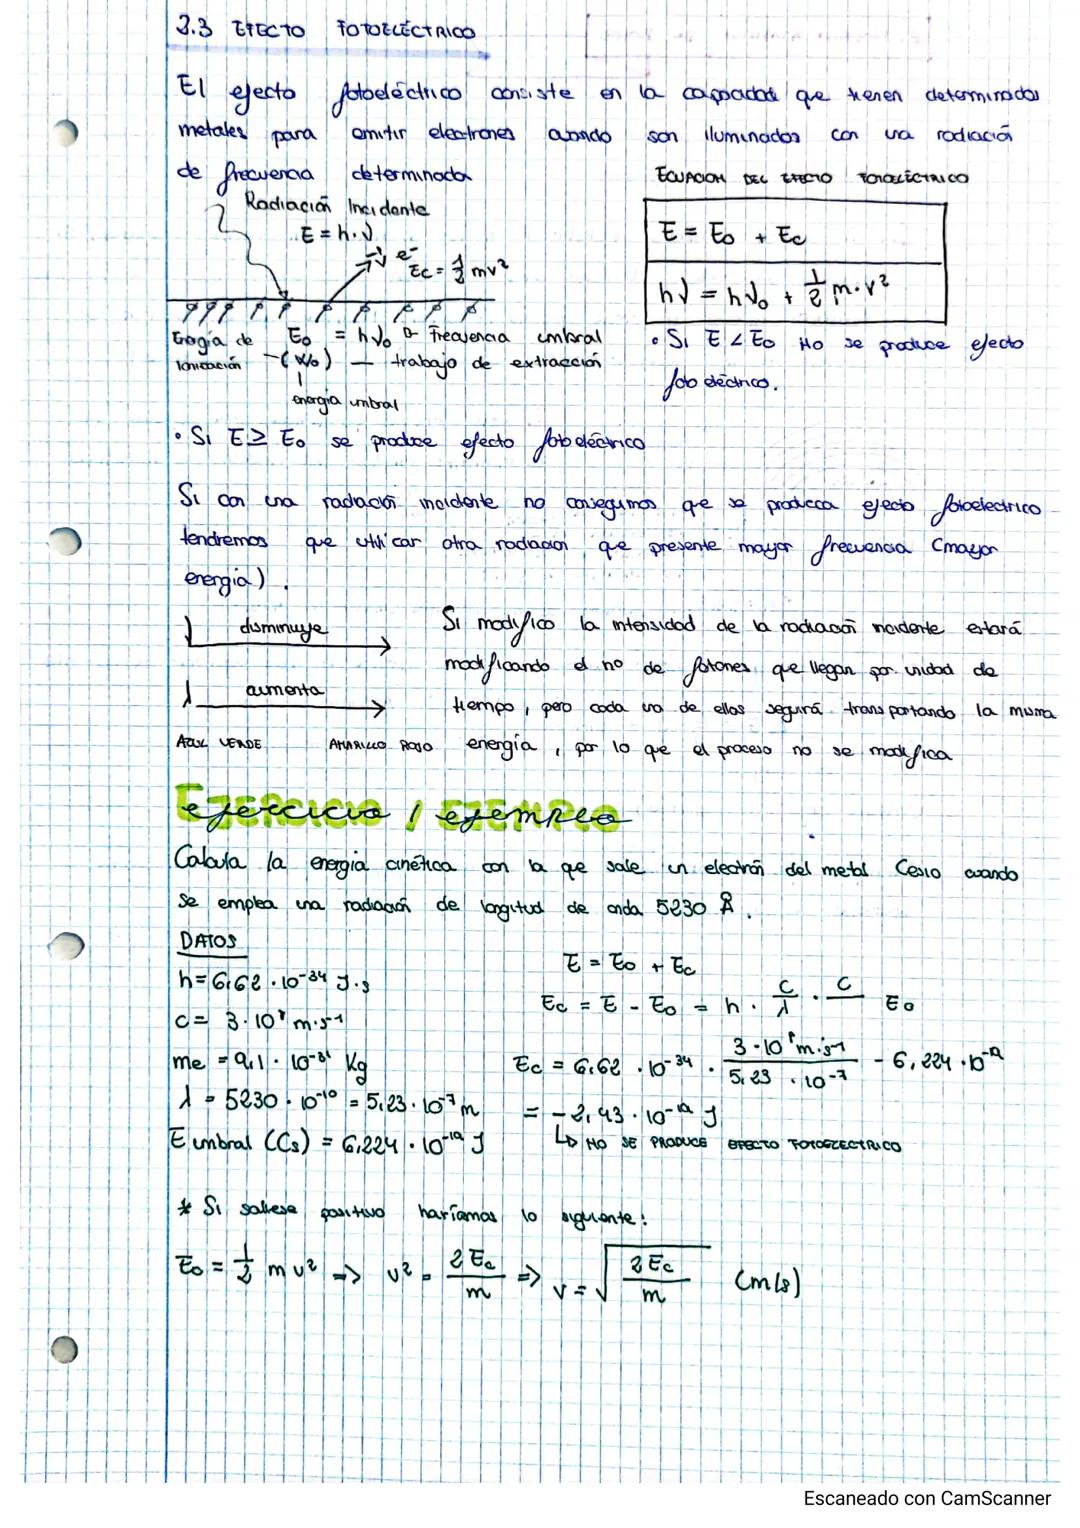 2.3 EFECTO FOTOELÉCTRICO
El efecto fotoeléctrico consiste en la capacidad que tienen determinados
metales para emitir electrones cuando son iluminados con una radiación
de frecuencia determinada
ECUACION DEL EFECTO FOTOELÉCTRICO
Radiación Incidente
E = h·ν
e⁻
Ec = 1/2 mv²
E = E₀ + Ec
hν = hν₀ + 1/2 m·v²
Energía de ionización
E₀ = hν₀ → Frecuencia umbral
(W₀) — trabajo de extracción
energía umbral
• Si E < E₀ NO se produce efecto
fotoeléctrico.
• Si E ≥ E₀ se produce efecto fotoeléctrico
Si con una radiación incidente no conseguimos que se produzca efecto fotoelectrico
tendremos que utilicar otra radiacion que presente mayor frecuencia (mayor
energía).
ν disminuye
λ aumenta
AZUL VERDE AMARILLO ROJO
Si modifico la intensidad de la radiación incidente estará
modificando el no de fotones que llegan por unidad de
tiempo, pero cada uno de ellos seguirá transportando la misma
energía, por lo que el proceso no se modifica
EJERCICIO / EJEMPLO
Calcula la energía cinética con la que sale un electrón del metal Cesio cuando
se emplea una radiación de longitud de onda 5230 Å.
DATOS
h = 6,62 · 10⁻³⁴ J·s
c = 3·10⁸ m·s⁻¹
me = 9,1 · 10⁻³¹ Kg
λ = 5230 · 10⁻¹⁰ = 5,23·10⁻⁷ m
E umbral (Cs) = 6,224 · 10⁻¹⁹ J
E = E₀ + Ec
Ec = E - E₀ = h · c/λ · c E₀
Ec = 6,62 · 10⁻³⁴ · 3·10⁸ m·s⁻¹ / 5,23 · 10⁻⁷ - 6,224·10⁻¹⁹
= -2,43 · 10⁻¹⁹ J
↳ NO SE PRODUCE EFECTO FOTOELECTRICO
* Si saliese positivo haríamos lo siguiente:
E₀ = 1/2 m v² => v² = 2Ec/m => v = √(2Ec/m) (m/s)
Escaneado con CamScanner